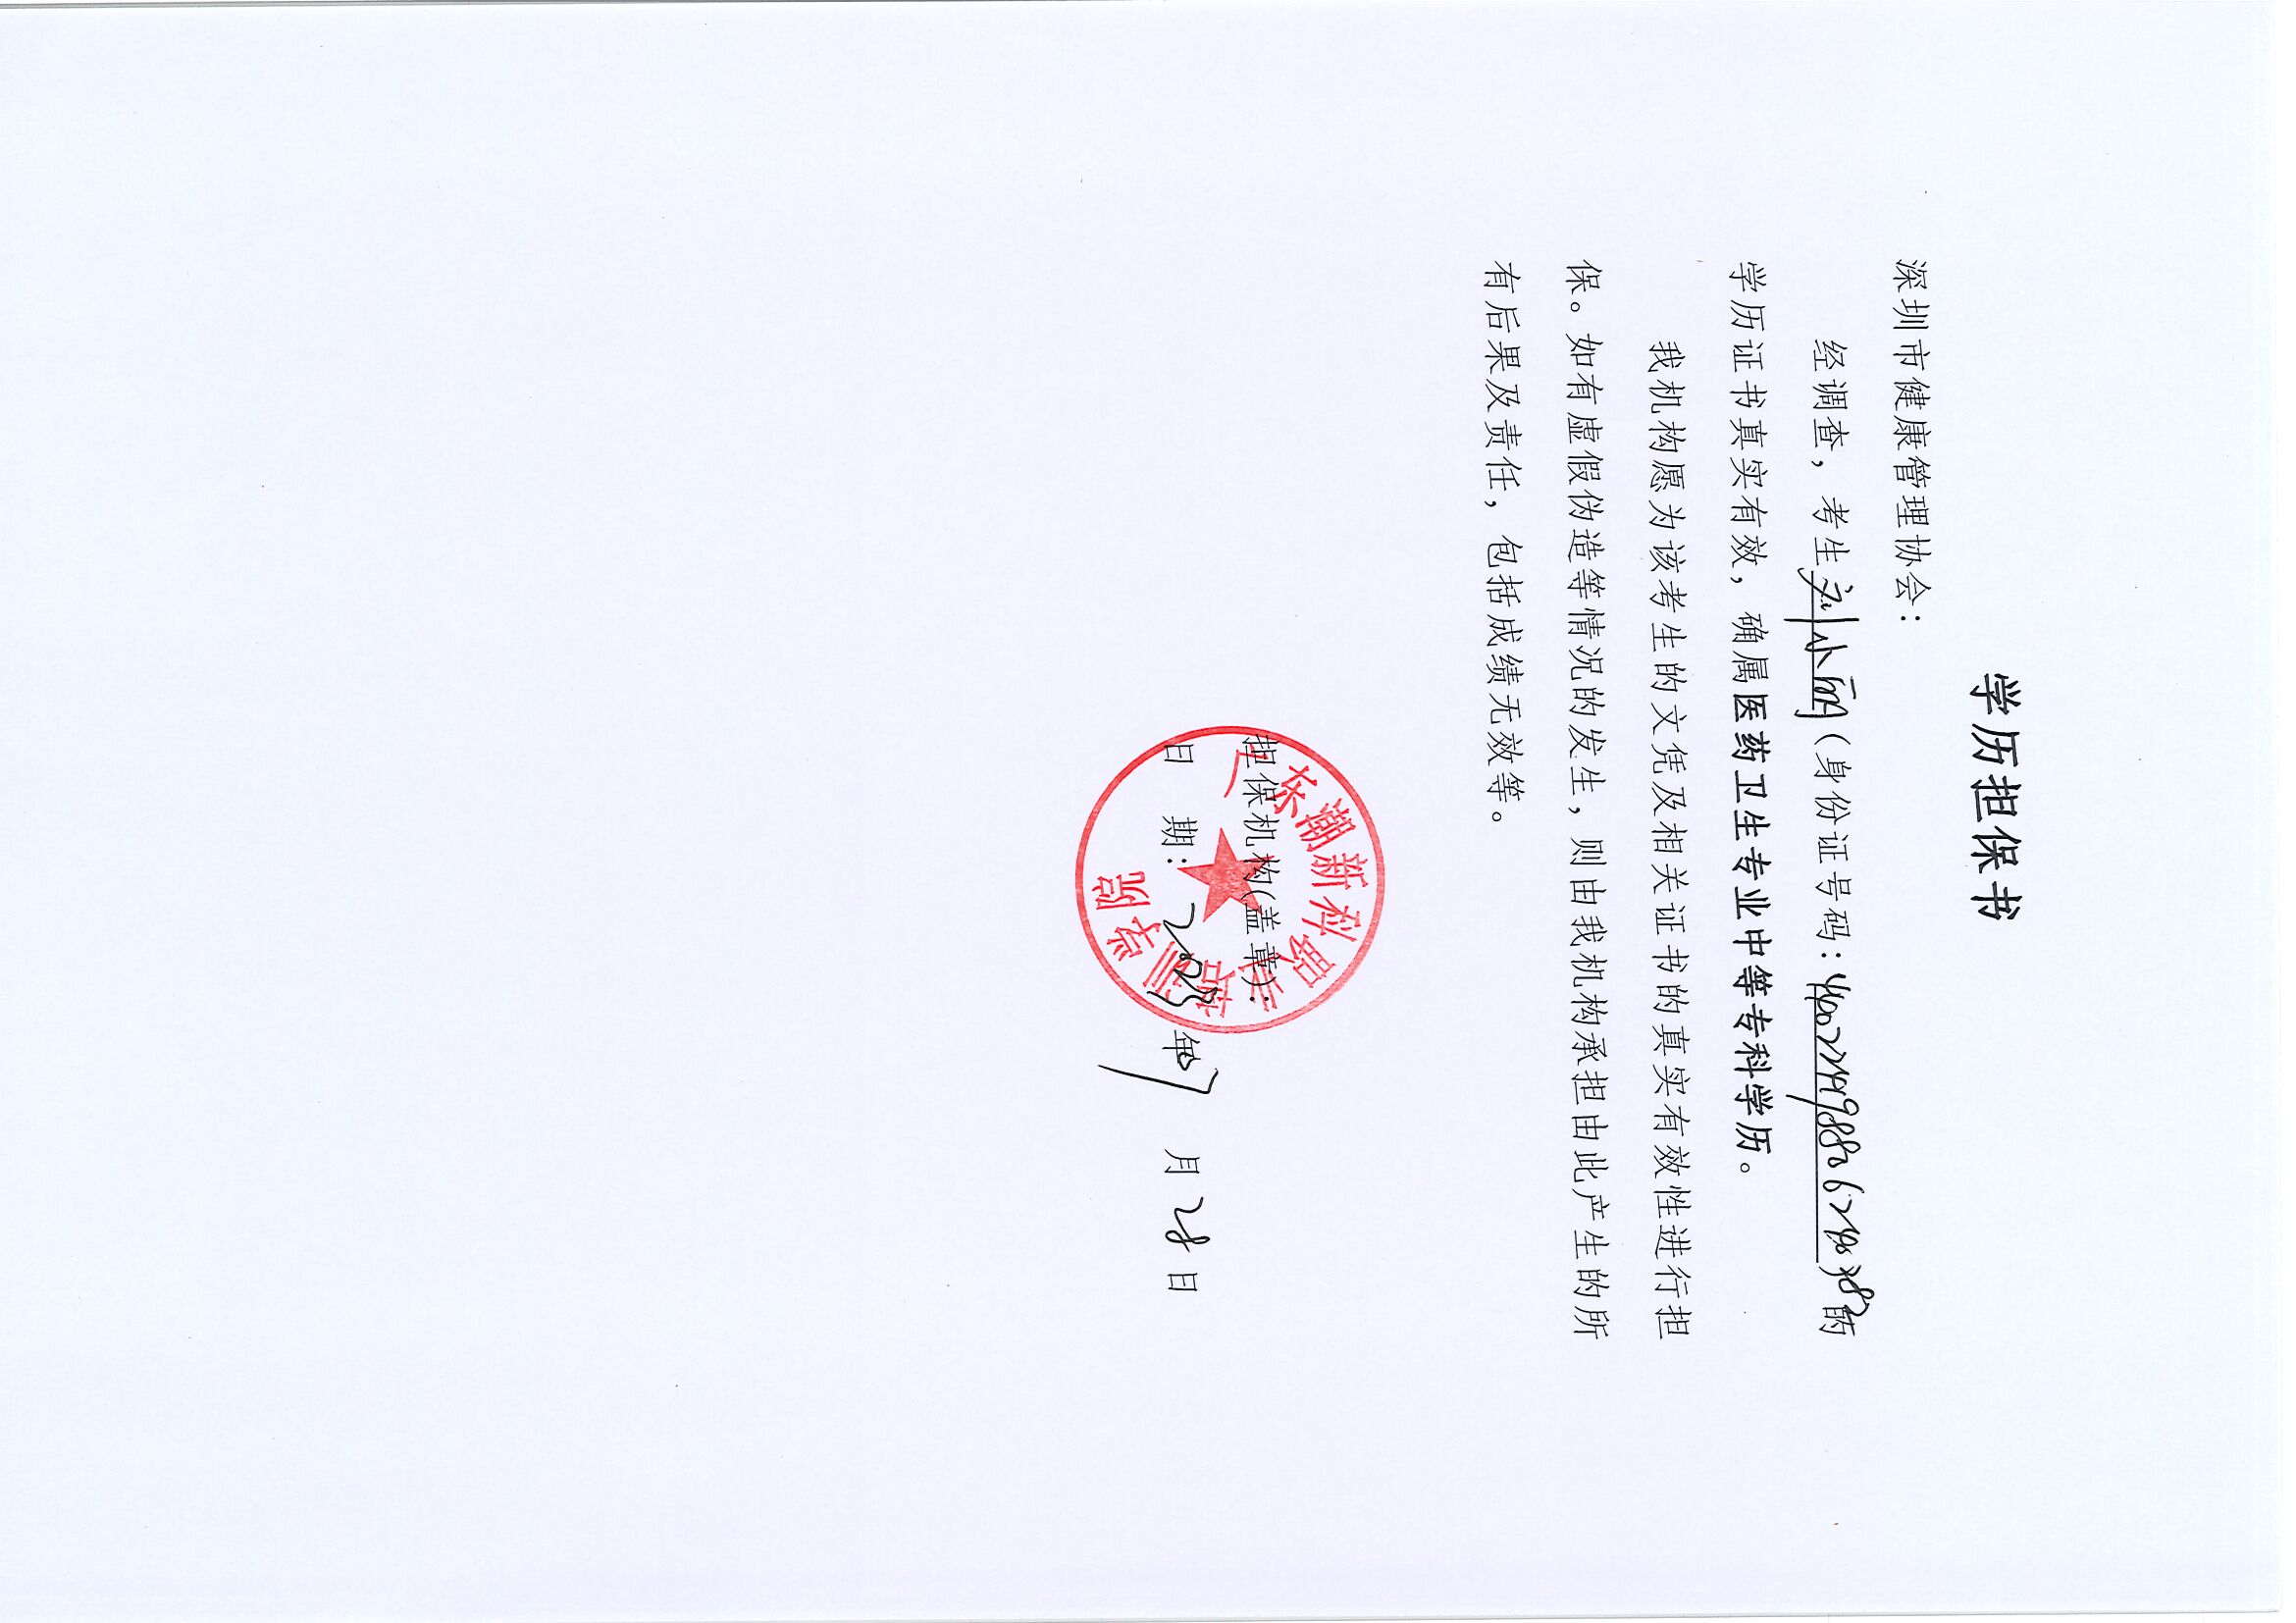 学历担保书
深圳市健康管理协会：
经调查，考生刘小丽（身份证号码：）的
学历证书真实有效，确属医药卫生专业中等专科学历。
我机构愿为该考生的文凭及相关证书的真实有效性进行担
保。如有虚假伪造等情况的发生，则由我机构承担由此产生的所
有后果及责任，包括成绩无效等。
担保机构(盖章)：
广东潮新科职业培训学院
日 期： 年 月 28 日